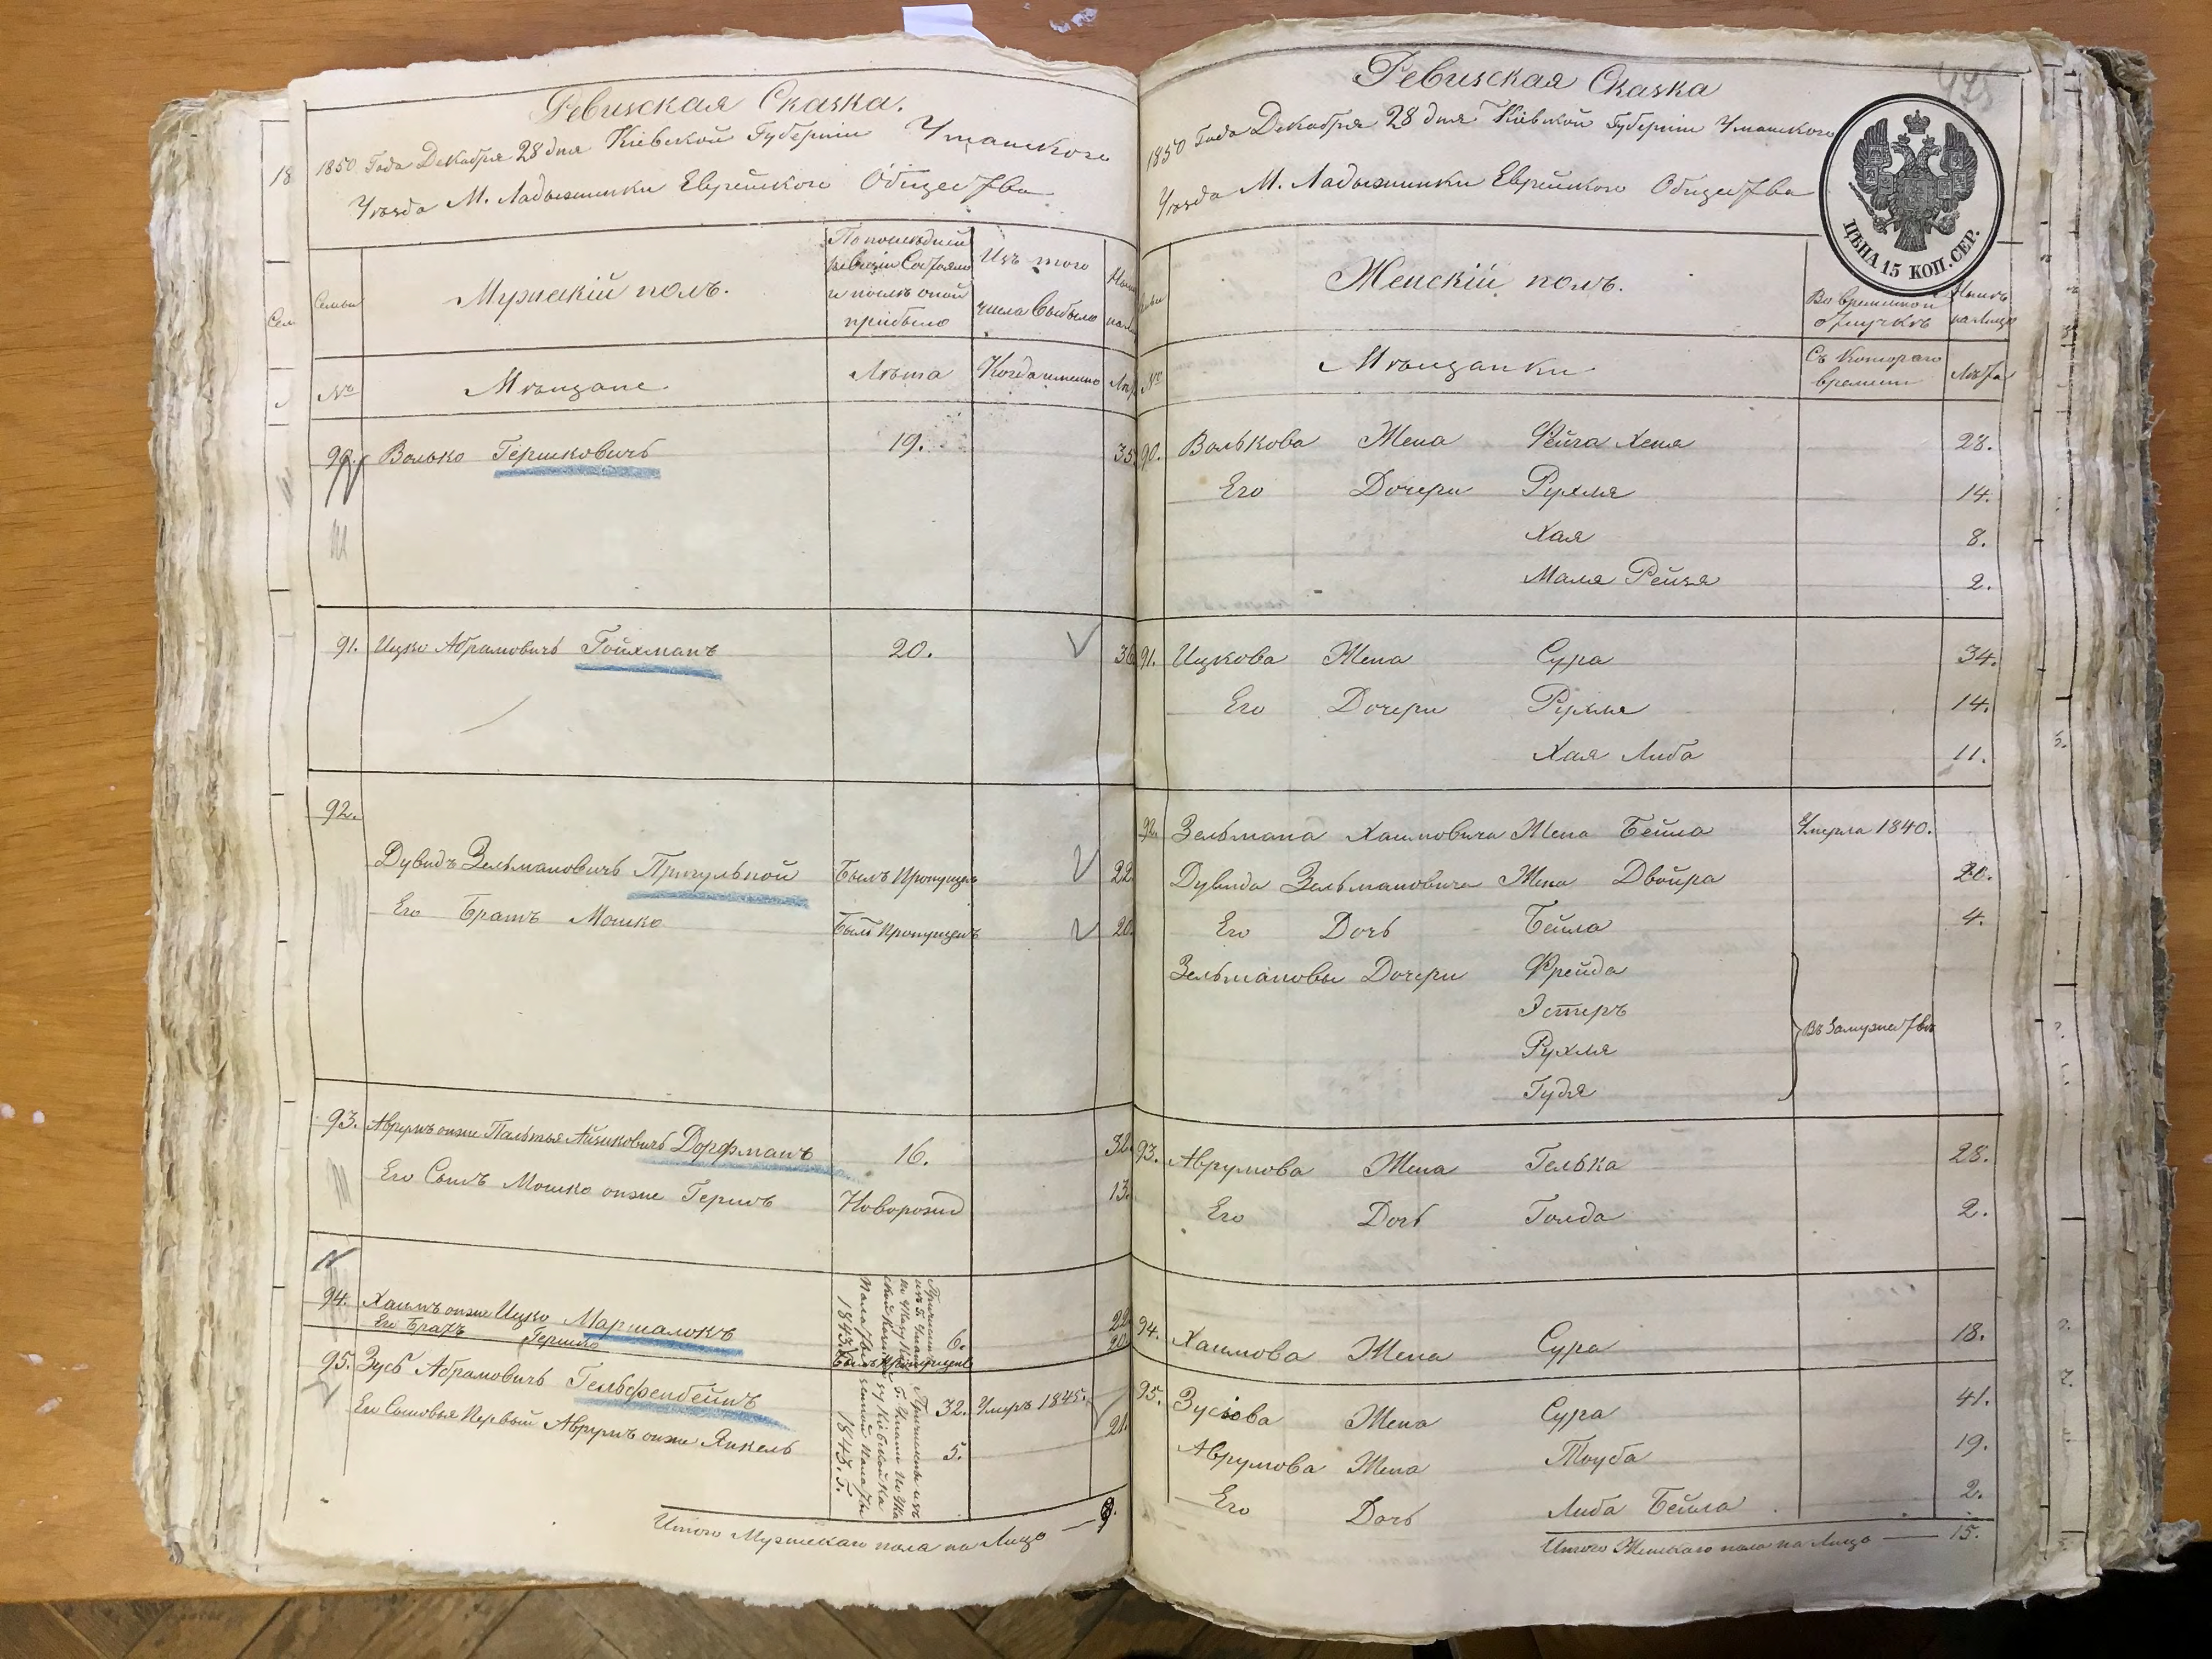 Ревизская Сказка.
1850 Года Декабря 28 дня Кіевской Губерніи Уманскаго
Уѣзда М. Ладыжинки Еврейскаго Общества
Семьи
Мужескій полъ.
По послѣдней ревизіи Состояло и послѣ оной прибыло
Изъ того числа выбыло
№
Мѣщане.
Лѣта
Когда именно
90. Волько Гершковичъ 19. 35
91. Ицко Абрамовичъ Гойхманъ 20. 36
92.
Дувидъ Зельмановичъ Пригульной Былъ Пропущенъ 22
Его Братъ Мошко Былъ Пропущенъ 20.
93. Аврумъ онже Пальтья Айзиковичъ Дорфманъ 16. 32.
Его Сынъ Мошко онже Гершъ Новорожд 13.
94. Хаимъ онже Ицко Маршалокъ 6. 22
Его Братъ Гершко Былъ Пропущенъ 20
1843.
95. Зусь Абрамовичъ Гельфенбейнъ 32. Умеръ 1845.
Его Сыновья Первый Аврумъ онже Янкель 5. 21.
1843. г.
Итого Мужескаго пола на Лицо — 9.
Ревизская Сказка
1850 Года Декабря 28 дня Кіевской Губерніи Уманскаго
Уѣзда М. Ладыжинки Еврейскаго Общества
ЦѢНА 15 КОП. СЕР.
Женскій полъ.
Во временной отлучкѣ
Нынѣ на Лицо
№
Мѣщанки
Съ Котораго времени
Лѣта
90. Валькова Жена Фейга Хеня 28.
Его Дочери Рухля 14.
Хая 8.
Маля Рейзя 2.
91. Ицкова Жена Сура 34.
Его Дочери Рухля 14.
Хая Либа 11.
92. Зельмана Хаимовича Жена Бейла Умерла 1840.
Дувида Зельмановича Жена Двойра 20.
Его Дочь Бейла 4.
Зельмановы Дочери Фрейда
Эстеръ
Въ Замужествѣ
Рухля
Гудя
93. Аврумова Жена Гелька 28.
Его Дочь Голда 2.
94. Хаимова Жена Сура 18.
95. Зусьова Жена Сура 41.
Аврумова Жена Тоуба 19.
Его Дочь Либа Бейла 2.
Итого Женскаго пола на Лицо — 15.